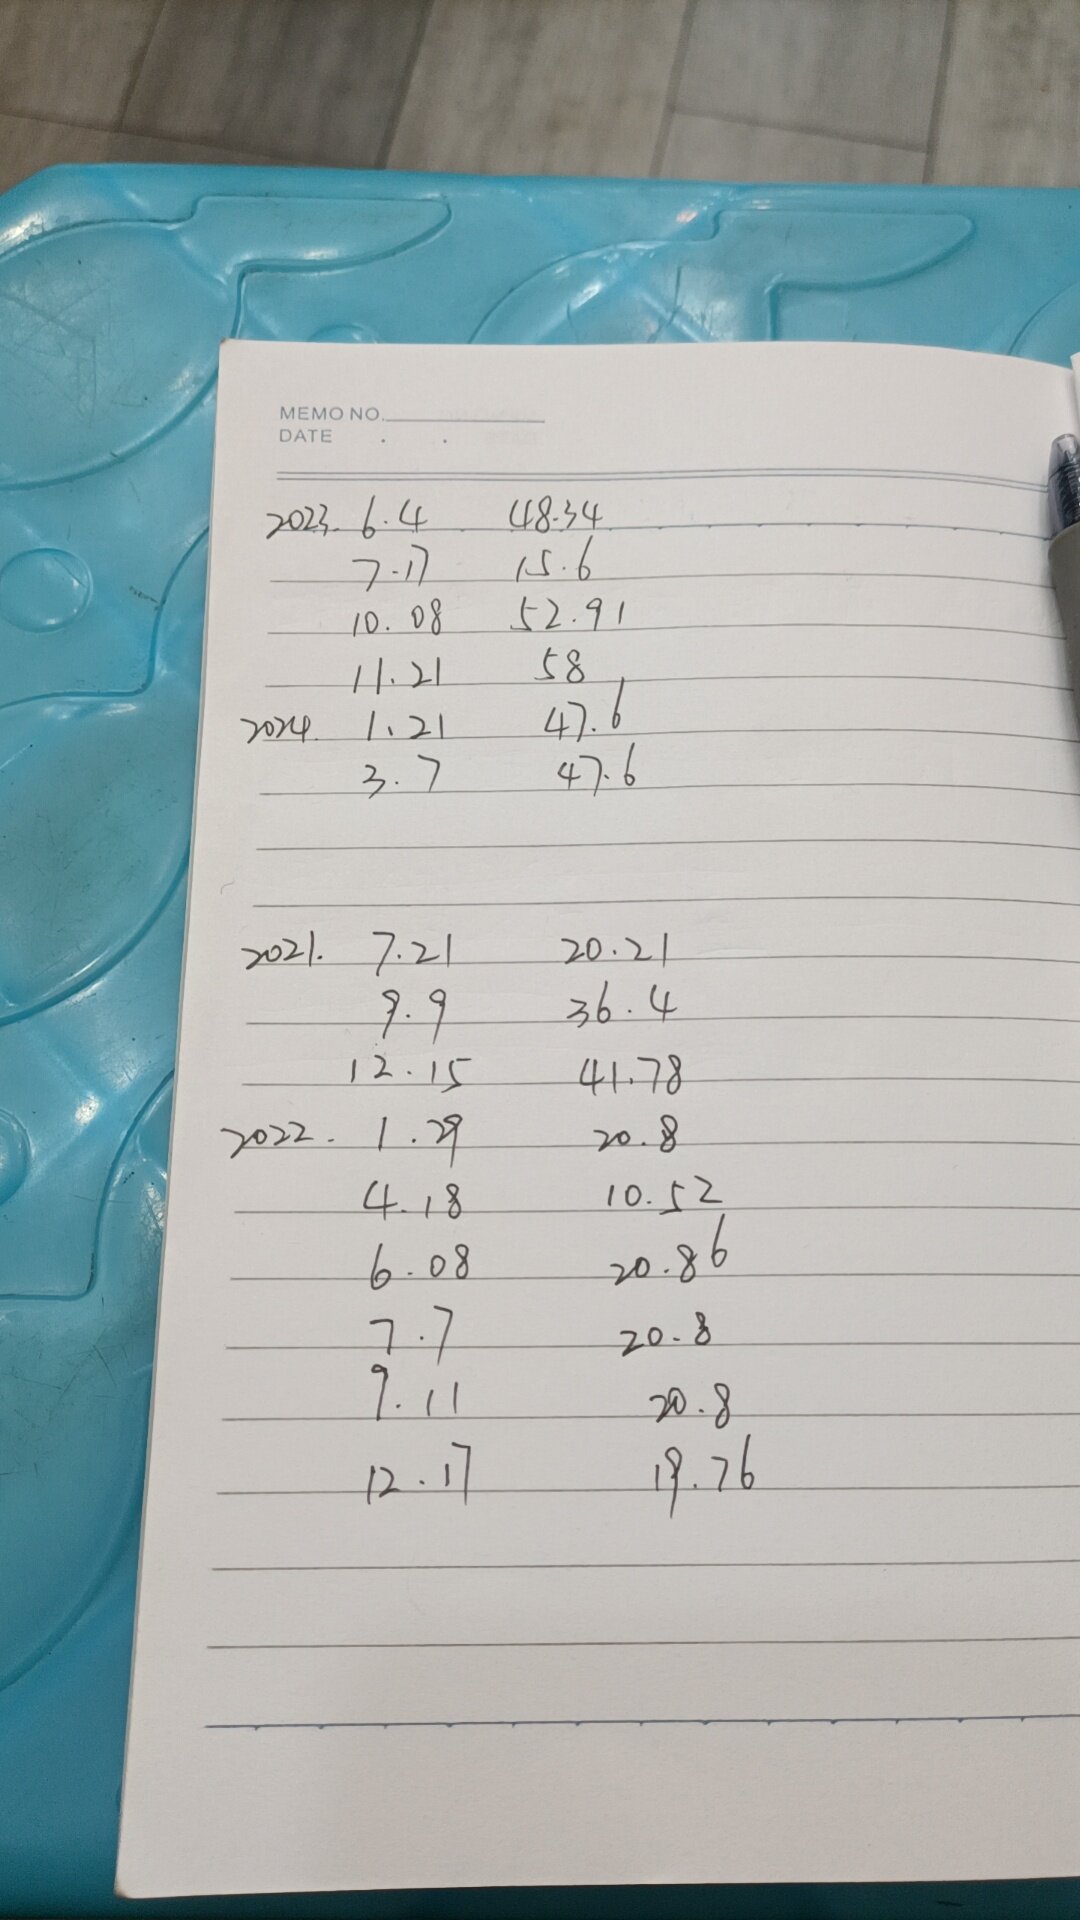 MEMO NO.
DATE . .
2023. 6.4 48.34
7.17 15.6
10.08 52.91
11.21 58
2024. 1.21 47.6
3.7 47.6
2021. 7.21 20.21
9.9 36.4
12.15 41.78
2022. 1.29 20.8
4.18 10.52
6.08 20.86
7.7 20.8
9.11 20.8
12.17 19.76